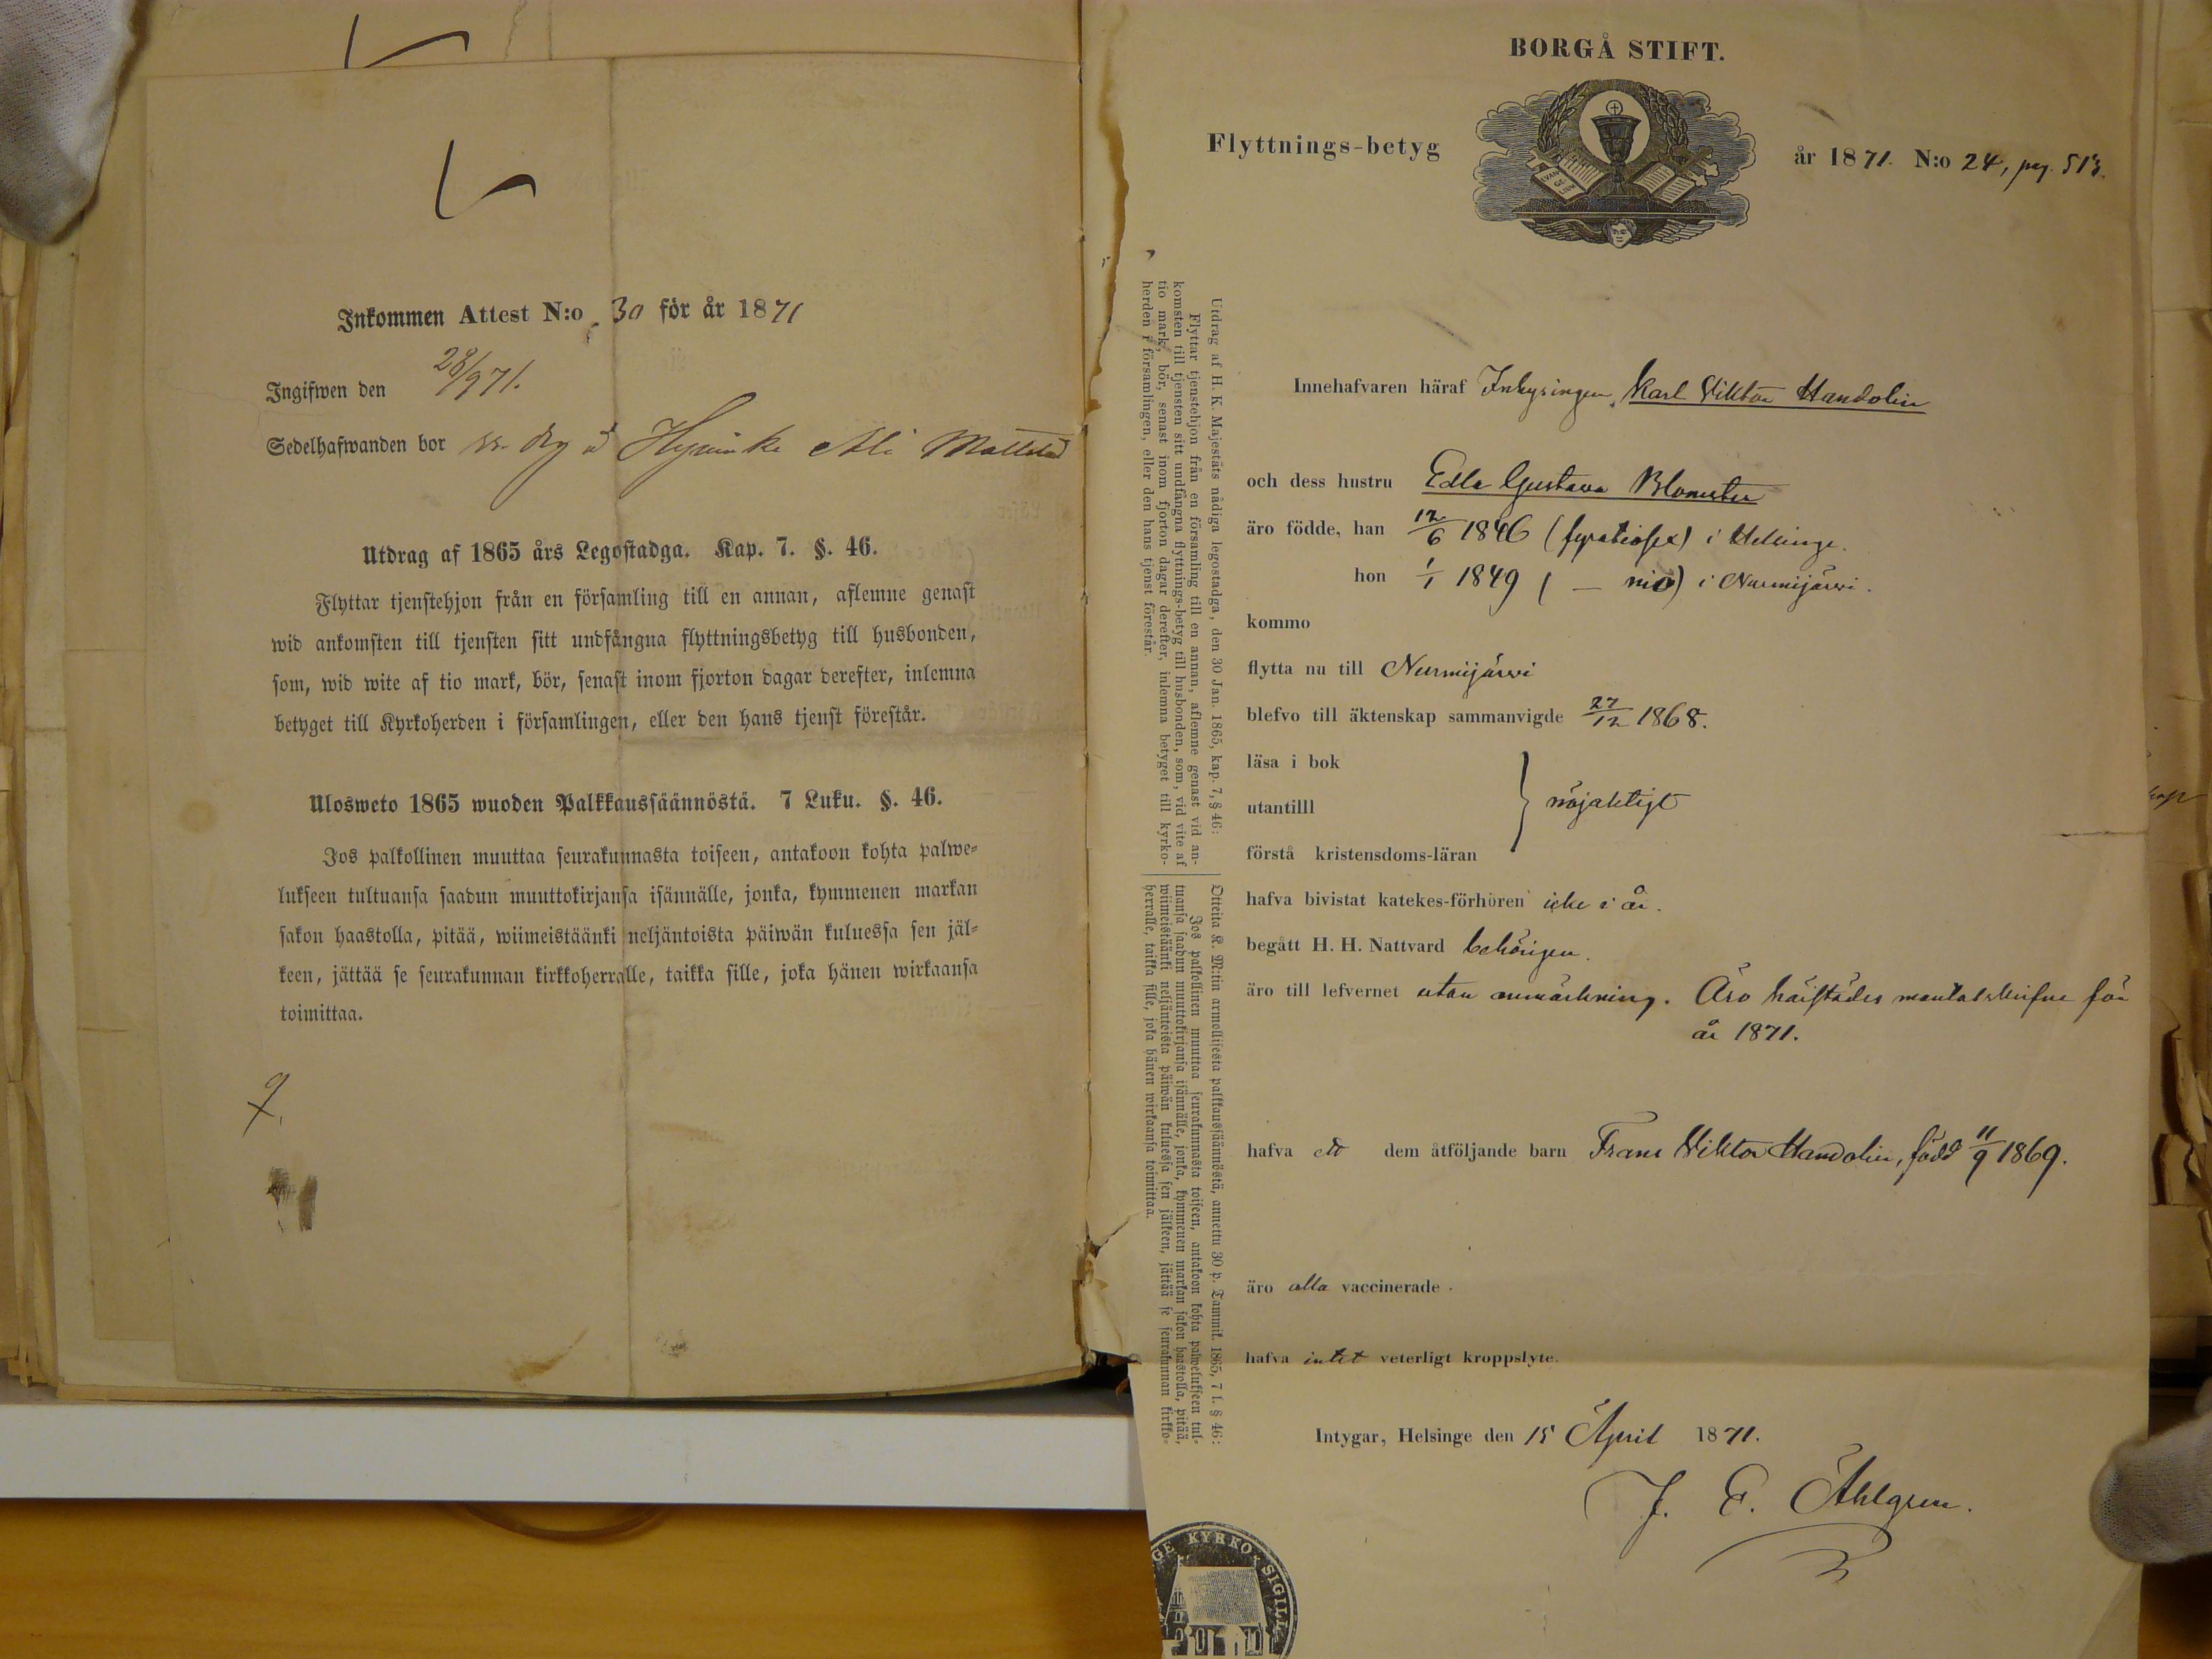 Inkommen Attest N:o 30 för år 1871
Ingifwen den 28/9 71.
Sedelhafwanden bor Hyvinke Ali
Utdrag af 1865 års Legostadga. Kap. 7. §. 46.
Flyttar tjenstehjon från en församling till en annan, aflemne genast
wid ankomsten till tjensten sitt undfångna flyttningsbetyg till husbonden,
som, wid wite af tio mark, bör, senast inom fjorton dagar derefter, inlemna
betyget till Kyrkoherden i församlingen, eller den hans tjenst förestår.
Ulosweto 1865 wuoden Palkkaussäännöstä. 7 Luku. §. 46.
Jos palkollinen muuttaa seurakunnasta toiseen, antakoon kohta palwe=
lukseen tultuansa saadun muuttokirjansa isännälle, jonka, kymmenen markan
sakon haastolla, pitää, wiimeistäänki neljäntoista päiwän kuluessa sen jäl=
keen, jättää se seurakunnan kirkkoherralle, taikka sille, joka hänen wirkaansa
toimittaa.
7.
BORGÅ STIFT.
Flyttnings-betyg
EVAN
GE
LIUM
år 1871. N:o 24, pag. 513.
Utdrag af H. K. Majestäts nådiga legostadga, den 30 Jan. 1865, kap. 7, § 46:
Flyttar tjenstehjon från en församling till en annan, aflemne genast vid an-
komsten till tjensten sitt undfångna flyttnings-betyg till husbonden, som, vid vite af
tio mark, bör, senast inom fjorton dagar derefter, inlemna betyget till kyrko-
herden i församlingen, eller den hans tjenst förestår.
Otteita K. M:tin armollisesta palkkaussäännöstä, annettu 30 p. Tammik. 1865, 7 l. § 46:
Jos palkollinen muuttaa seurakunnasta toiseen, antakoon kohta palwelukseen tul=
tuansa saadun muuttokirjansa isännälle, jonka, kymmenen markan sakon haastolla, pitää,
wiimeistäänki neljäntoista päiwän kuluessa sen jälkeen, jättää se seurakunnan kirkko=
herralle, taikka sille, joka hänen wirkaansa toimittaa.
Innehafvaren häraf Inhysingen, Karl Viktor Handolin
och dess hustru Edla Gustava Blomster
äro födde, han 12/6 1846 (fyratiosex) i Helsinge.
hon 1/1 1849 ( — nio) i Nurmijärvi.
kommo
flytta nu till Nurmijärvi
blefvo till äktenskap sammanvigde 27/12 1868.
läsa i bok
utantilll
} nöjaktigt
förstå kristensdoms-läran
hafva bivistat katekes-förhören icke i år.
begått H. H. Nattvard behörigen.
äro till lefvernet utan anmärkning. Äro härstädes mantalskrifne för
år 1871.
hafva ett dem åtföljande barn Frans Viktor Handolin, född 11/9 1869.
äro alla vaccinerade.
hafva intet veterligt kroppslyte.
Intygar, Helsinge den 15 April 1871.
J. E. Ahlgren.
GE KYRKO SIGILL